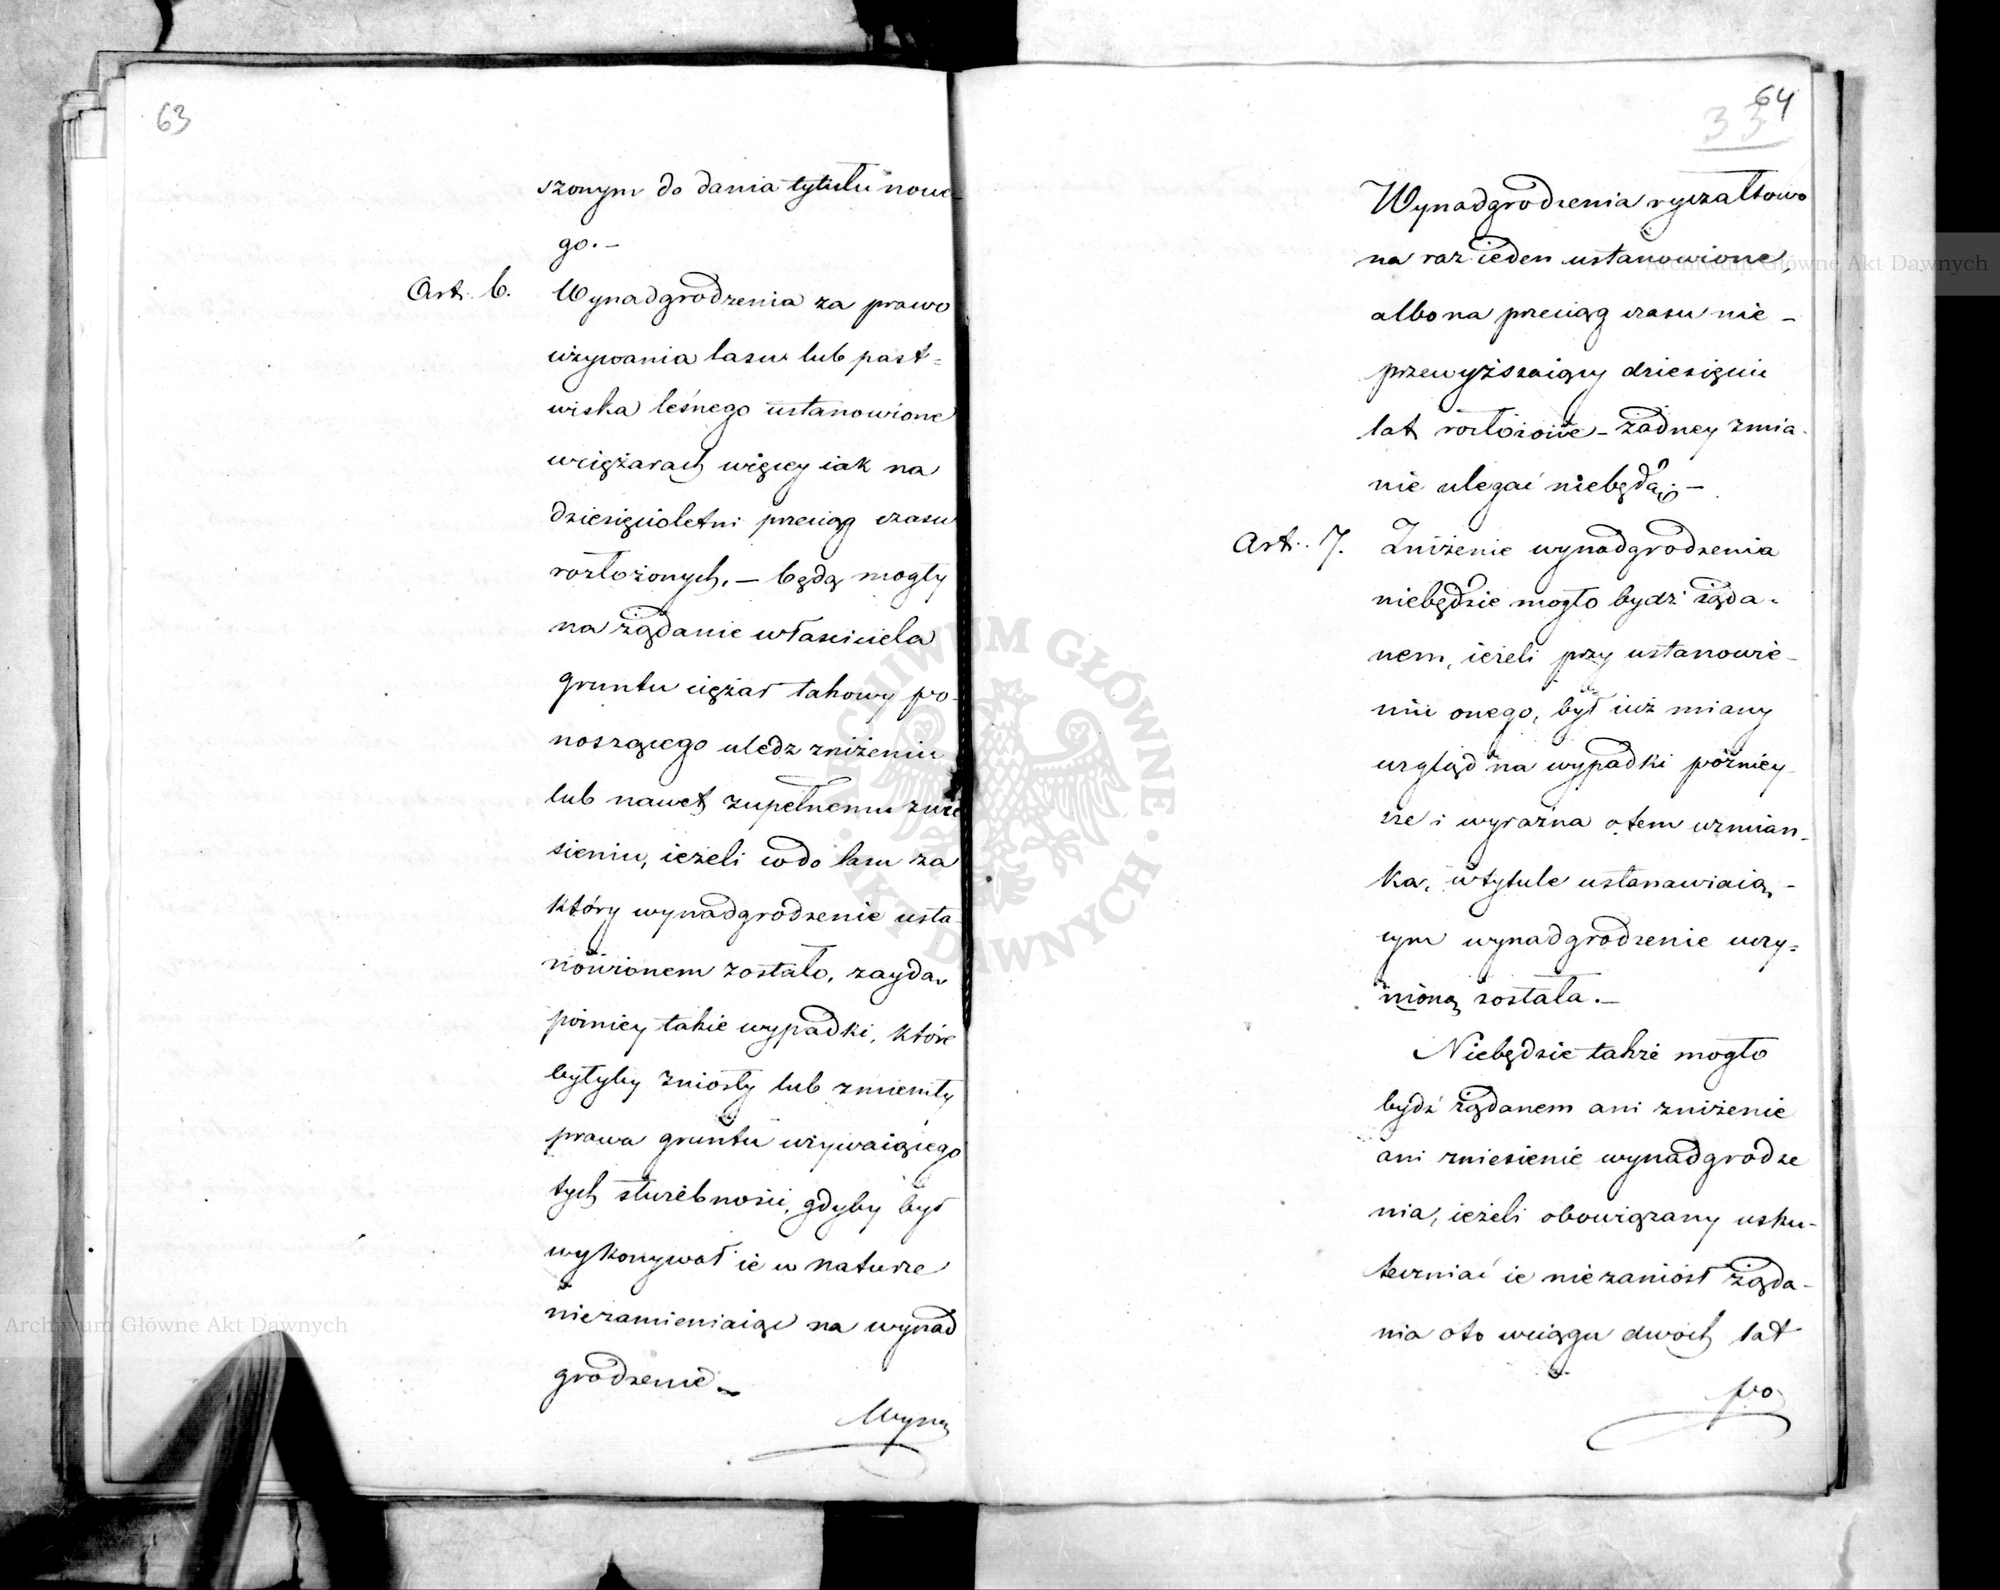 63
szonym do dania tytułu nowe-
go.-
Art. 6. Wynadgrodzenia za prawo
używania lasu lub past=
wiska leśnego ustanowione
wciężarach więcey iak na
dziesięcioletni przeciąg czasu
rozłożonych, — będą mogły
na żądanie właściciela
gruntu ciężar takowy po-
noszącego uledz zniżeniu
lub nawet zupełnemu znie
sieniu, ieżeli codo lasu za
który wynadgrodzenie usta-
nowionem zostało, zaydą
późniey takie wypadki, które
byłyby zniosły lub zmieniły
prawa gruntu używaiącego
tych służebności, gdyby był
wykonywał ie w naturze
niezamieniaiąc na wynad
grodzenie.-
Wyna
64
33
Wynadgrodzenia ryczałtowo
na raz ieden ustanowione,
albo na przeciąg czasu nie -
przewyższaiący dziesięciu
lat rozłożone - żadney zmia-
nie ulegać niebędą; -
Art. 7. Zniżenie wynadgrodzenia
niebędzie mogło bydź żąda-
nem, ieżeli przy ustanowie-
niu onego, był iuż miany
wzgląd na wypadki późniey-
sze i wyraźna o tem wzmian-
ka, w tytule ustanawiaią-
cym wynadgrodzenie uczy=
nioną została.-
Niebędzie także mogło
bydź żądanem ani zniżenie
ani zniesienie wynadgrodze
nia, ieżeli obowiązany usku-
teczniać ie niezaniósł żąda-
nia oto wciągu dwóch lat
po
Archiwum Główne Akt Dawnych
Archiwum Główne Akt Dawnych
ARCHIWUM GŁÓWNE · AKT DAWNYCH ·